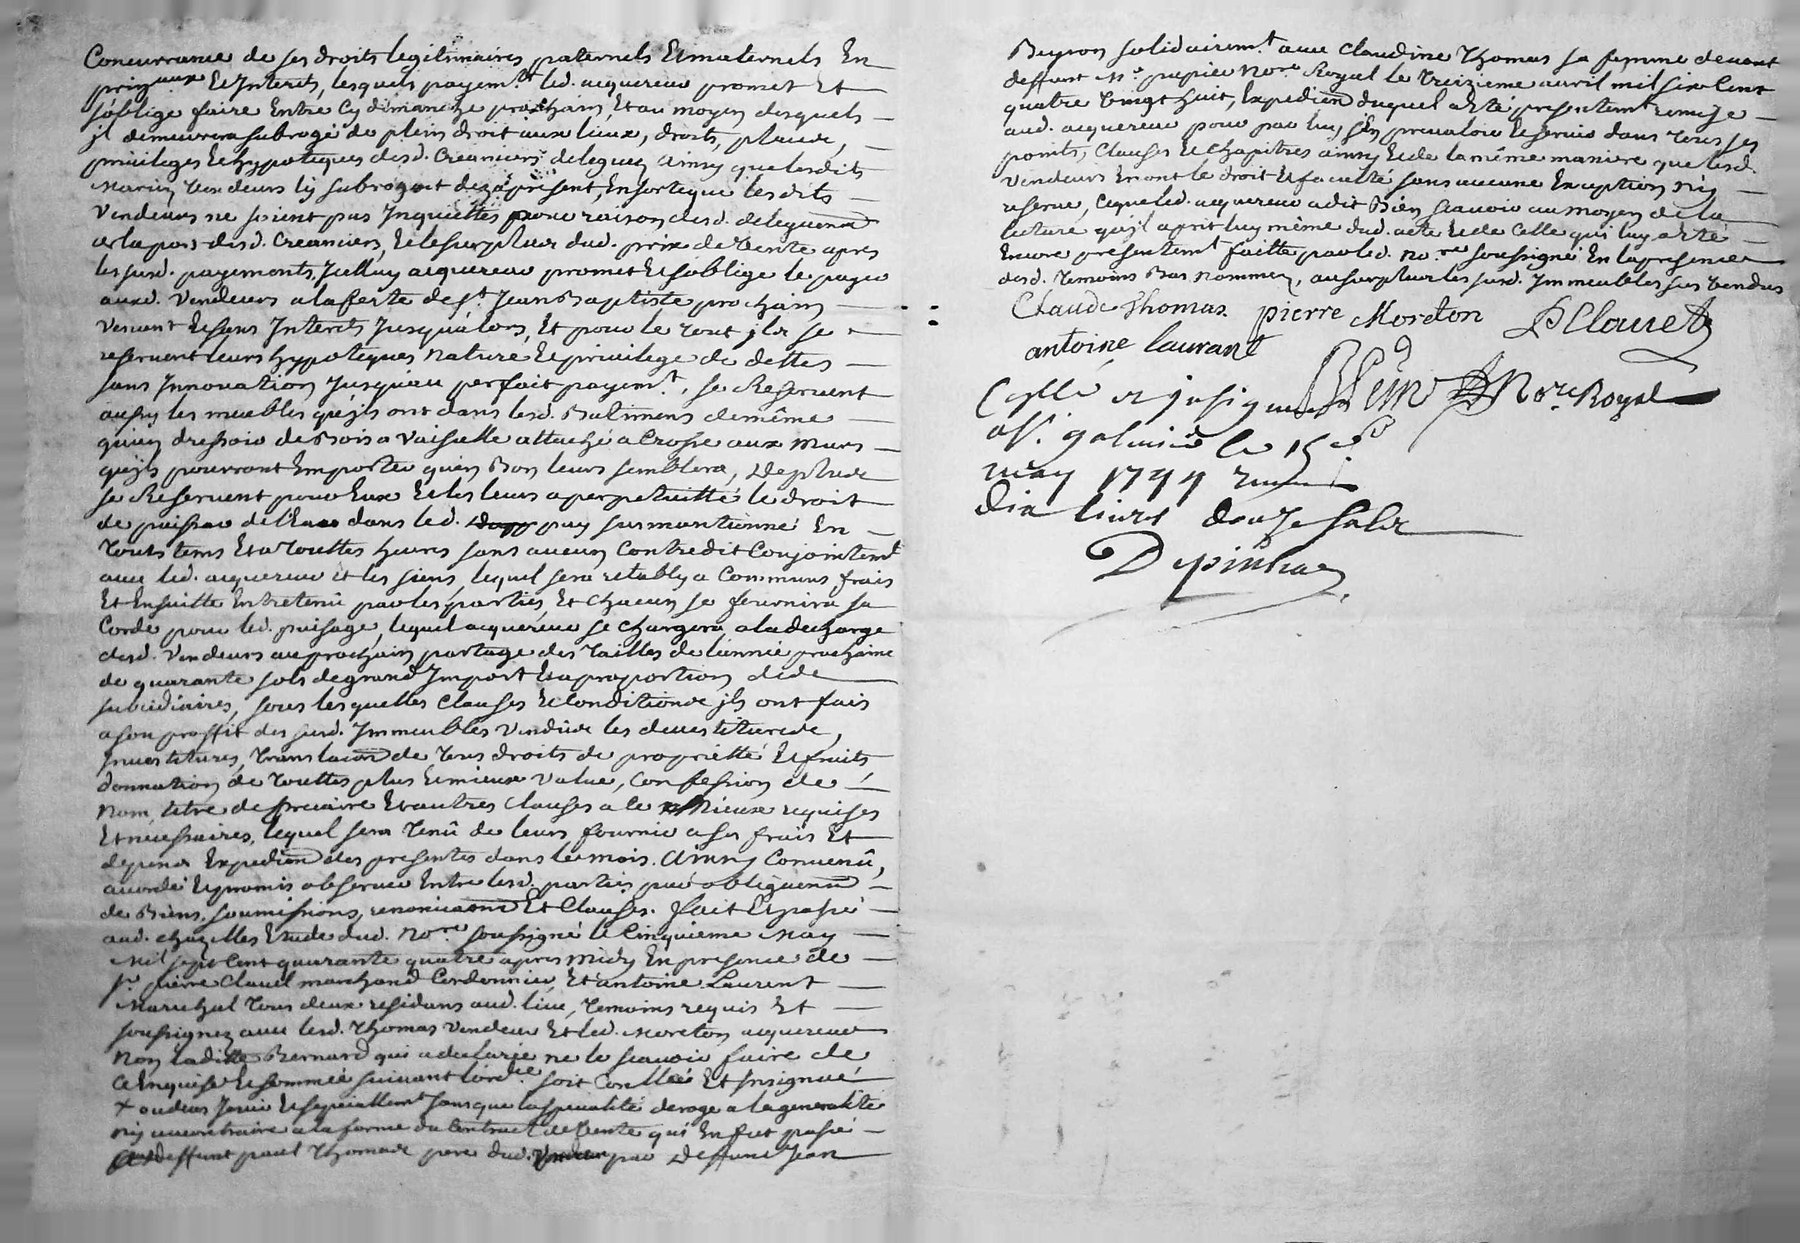 Concurrance de ses droits legitimaires paternels Et maternels En
prinp.aux Et Interets, lesquels payem.ts led. acquereur promet Et
s'oblige faire Entre Cy dimanche prochain, Et au moyen desquels
jl demeurera subrogé de plein droit aux lieux, droits, place,
privileges Et hypoteques desd. Creanciers deleguez ainsy que lesdits
Mariez Vendeurs l'y subrogent dezapresent, En sorte que lesdits
Vendeurs ne soient pas Inquiettés pour raison desd. deleguaons
de la part desd. Creanciers, Et le surplus dud. prix de Vente apres
les susd. payements, Icelluy acquereur promet Et s'oblige le payer
auxd. Vendeurs a la feste de S.t Jean Baptiste prochain
Venant Et sans Interets Jusqu'alors, Et pour le tout jls se
reservent leurs hypoteques nature Et privilege de dettes
sans Innovation Jusqu'au parfait payem.t, se Reservent
aussy les meubles qu'jls ont dans lesd. Batimens de même
qu'un dressoir de Bois a Vaiselle attaché a Crosse aux Murs
qu'jls pourront Emporter quen Bon leurs semblera, De plus
se Reservent pour Eux Et les leurs a perpetuitté le droit
de puiser de l'Eau dans led. puy susmentionné En
Touts tems Et a Touttes heures sans aucun Contredit Conjointem.t
avec led. acquereur et les siens, lequel sera retably a Communs frais
Et Ensuitte Entretenû par les parties, Et Chacun se fournira sa
Corde pour led. puisage, lequel acquereur se Chargera a la decharge
desd. Vendeurs au prochain partage des Tailles de l'année prochaine
de quarante sols de grand Import Et a proportion d'ide
subsidiaires, sous lesquelles Clauses Et Conditions jls ont fait
a son proffit des susd. Immeubles Vendus les devestitures,
Investitures, Translaon de Tous droits de proprietté Et fruits
donnation de Touttes plus Et mieux Value, Confession de
Nom, titre de precaire Et autres Clauses a ce Mieux requises
Et necessaires, lequel sera Tenû de leurs fournir a ses frais Et
depens Expedion des presentes dans le mois. Ainsy Convenû,
accordé Et promis observer Entre lesd. parties par obliguaons
de Biens, soumissions, renonciaons Et Clauses. fait Et passé
aud. chazelles Etude dud. No.re soussigné le Cinquieme May
Mil sept Cent quarante quatre apres midy En presence de
s.r pierre Clavel marchand Cordonnier, Et antoine Laurent
Marechal Tous deux residans aud. lieu, Temoins requis Et
soussignez avec lesd. Thomas Vendeur Et led. Moreton acquereur
Non laditte Bernard qui a declaré ne le sçavoir faire de
Ce Enquise Et sommée suivant l'ord.ce soit Conllé Et Insignué
Et specialem.t sans que la specialité deroge a la generalité
Ny au contraire a la forme du Contract de Vente qui En fut passé
deffunt paul Thomas pere dud. Vendeur par Deffunt Jean
Beyron solidairem.t avec Claudine Thomas sa femme devant
deffunt M.e papier No.re Royal le Treizieme avril mil six Cent
quatre Vingt huit, Expedion duquel a Eté presentem.t remise
aud. acquereur pour par luy s'En prevaloir Et servir dans Tous ses
points, Clauses Et Chapitres ainsy Et de la même maniere que lesd.
Vendeurs En ont le droit Et faculté sans aucune Exception Ny
reserve, Ce que led. acquereur a dit Bien sçavoir au moyen de la
lecture qu'jl a prit luy même dud. acte Et de Celle qui luy a Eté
Encore presentem.t faitte par led. No.re soussigné En la presence
desd. Temoins Bas nommez, au surplus les susd. Immeubles sus Vendus
Claude Thomas. pierre Moreton P Clavel
antoine laurant
No.re Royal
Conllé et jnsignué a
St. galmier le 15e
may 1744 Receu
dix livres douze sols
Depinhac